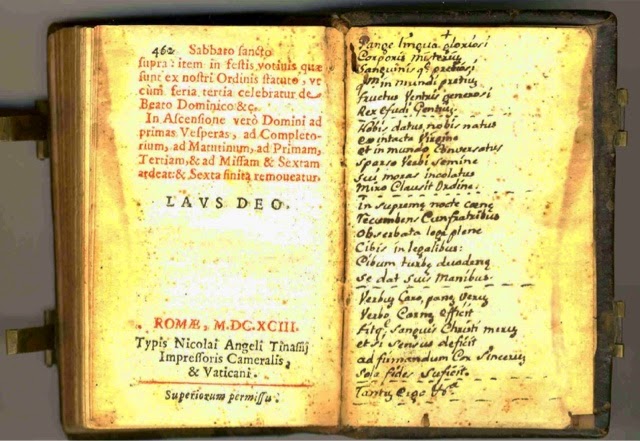 462 Sabbato sancto
supra: item in festis votiuis quæ
sunt ex nostri Ordinis statuto, ve
cùm feria tertia celebratur de
Beato Dominico &c.
In Ascensione verò Domini ad
primas Vesperas, ad Completo-
rium, ad Matutinum, ad Primam,
Tertiam, & ad Missam & Sextam
ardeat: & Sexta finita remoueatur.
LAVS DEO.
ROMÆ, M.DC.XCIII.
Typis Nicolai Angeli Tinassij
Impressoris Cameralis
& Vaticani.
Superiorum permissu.
Pange lingua gloriosi
Corporis misterium
Sanguinis q; pretiosi
qm in mundi pretium
fructus Ventris generosi
Rex efudi Gentium
Nobis datus nobis natus
ex intacta Virgine
et in mundo Conversatus
Sparso Verbi Semine
Sui moras incolatus
Miro Clausit Ordine.
In supremę nocte cęnę
Recumbens Cum fratribus
Observata lege plene
Cibis in legalibus:
Cibum turbę duodenę
Se dat Suis Manibus.
Verbũ Caro, panẽ Verũ
Verbo Carnẽ efficit
Fitq; Sanguis Christi merũ
et si Sensus deficit
ad firmandum Cor Sincerũ
Sola fides Suficit.
Tantũ ergo